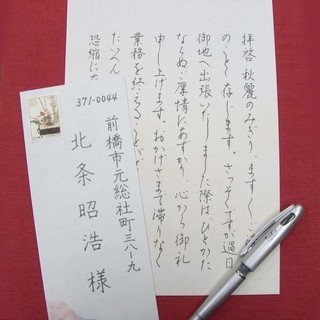 拝啓 秋麗のみぎり、ますますご
のことと存じます。さっそくですが過日
御地へ出張いたしました際は、ひとかた
ならぬご厚情にあずかり、心から御礼
申し上げます。おかげさまで滞りなく
業務を終える
恐縮に
371-0044
前橋市元総社町三八-九
北条昭浩様